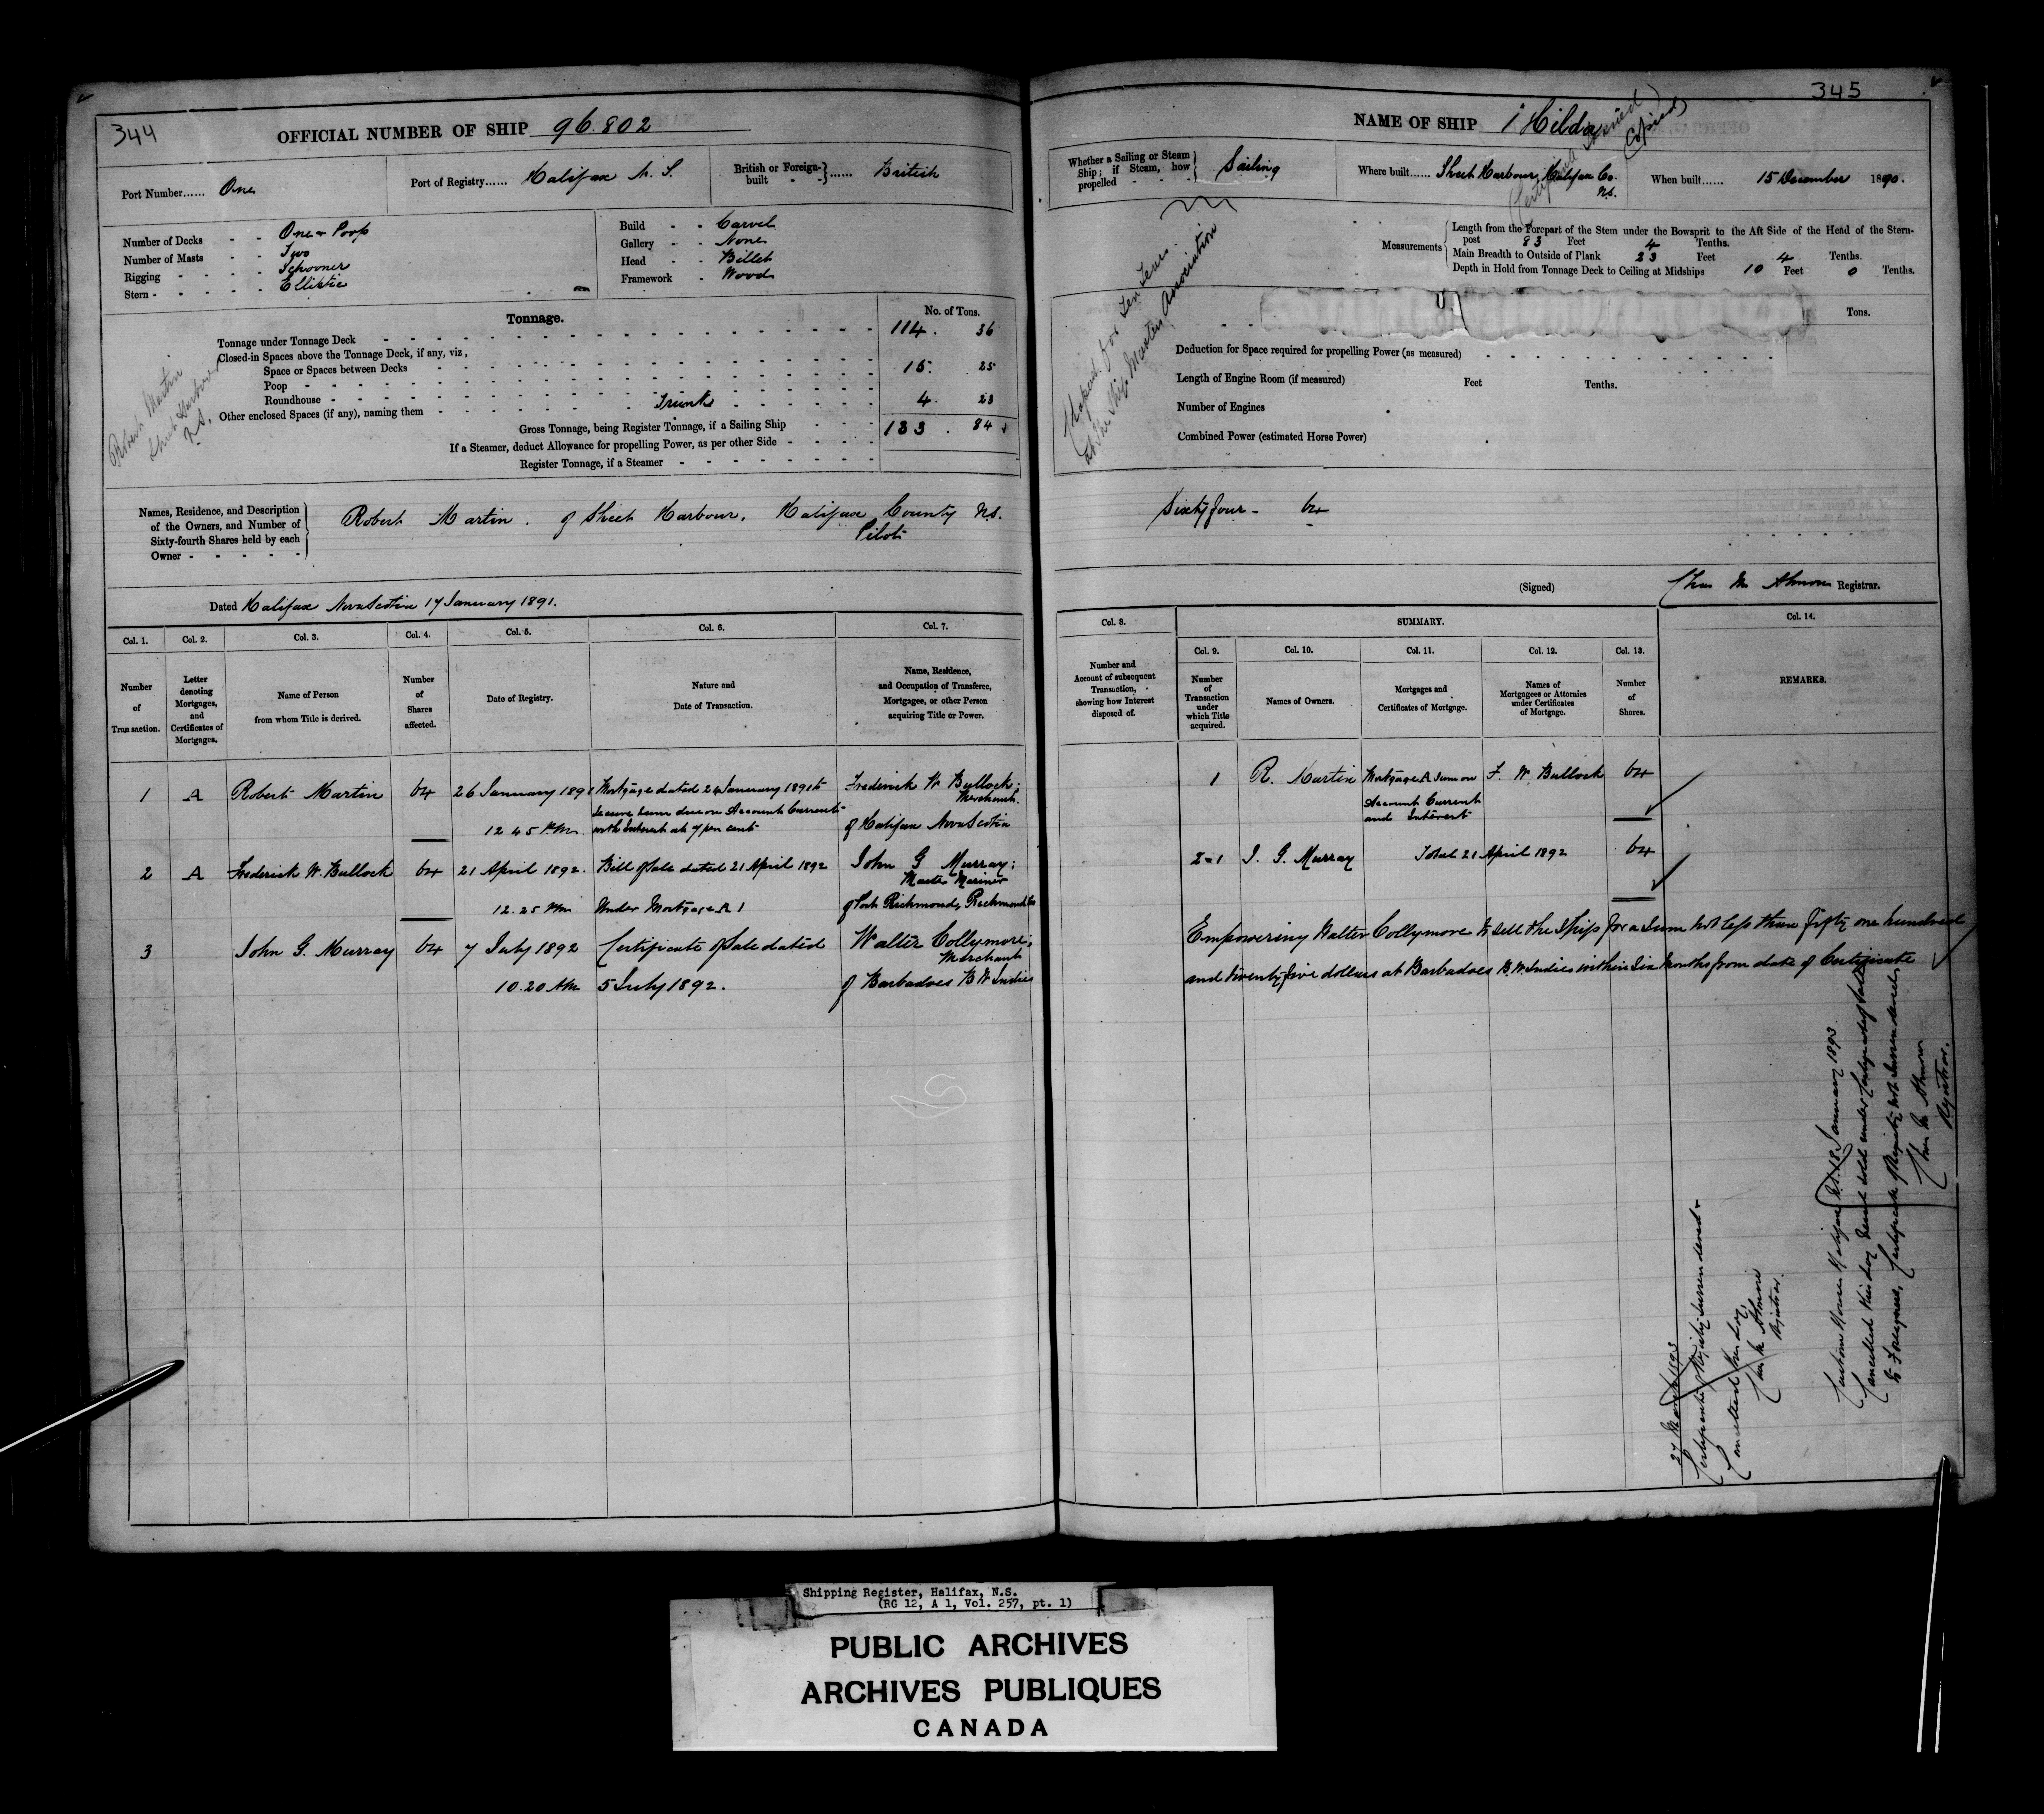 344
OFFICIAL NUMBER OF SHIP 96.802
Port Number...... One
Port of Registry...... Halifax N. S.
British or Foreign-built ...... British
Number of Decks - - One & Poop
Number of Masts - - Two
Rigging - - - - Schooner
Stern - - - - - Elliptic
Build - - Carvel
Gallery - - None
Head - - Billet
Framework - Wood
Tonnage.
No. of Tons.
Tonnage under Tonnage Deck 114. 36
Closed-in Spaces above the Tonnage Deck, if any, viz,
Space or Spaces between Decks
Poop 15. 25
Roundhouse
Other enclosed Spaces (if any), naming them Trunk 4. 23
Gross Tonnage, being Register Tonnage, if a Sailing Ship 133. 84
If a Steamer, deduct Allowance for propelling Power, as per other Side
Register Tonnage, if a Steamer
Robert Martin
Sheet Harbour
N.S.
Names, Residence, and Description
of the Owners, and Number of
Sixty-fourth Shares held by each
Owner - - - - -
Robert Martin. of Sheet Harbour, Halifax County N.S.
Pilot
Dated Halifax Nova Scotia 17 January 1891.
Col. 1. Col. 2. Col. 3. Col. 4. Col. 5. Col. 6. Col. 7.
Number of Transaction.
Letter denoting Mortgages, and Certificates of Mortgages.
Name of Person from whom Title is derived.
Number of Shares affected.
Date of Registry.
Nature and Date of Transaction.
Name, Residence, and Occupation of Transferee, Mortgagee, or other Person acquiring Title or Power.
1 A Robert Martin 64 26 January 1891 Mortgage dated 24 January 1891 to Frederick W. Bullock;
secure sum due on Account Current Merchant
12.45 P.M. with Interest at 7 per cent of Halifax Nova Scotia
2 A Frederick W. Bullock 64 21 April 1892. Bill of Sale dated 21 April 1892 John G Murray;
Master Mariner
12.25 P.M. Under Mortgage A 1 of Port Richmond, Richmond Co
3 John G. Murray 64 7 July 1892 Certificate of Sale dated Walter Collymore;
Merchant
10.20 A.M. 5 July 1892. of Barbadoes B W Indies
345
NAME OF SHIP "Hilda"
Copied
Whether a Sailing or Steam Ship; if Steam, how propelled - - - Sailing
Where built...... Sheet Harbour, Halifax Co. N.S.
When built...... 15 December 1890.
Measurements
Length from the Forepart of the Stem under the Bowsprit to the Aft Side of the Head of the Stern-
post 83 Feet 4 Tenths.
Main Breadth to Outside of Plank 23 Feet 4 Tenths.
Depth in Hold from Tonnage Deck to Ceiling at Midships 10 Feet 0 Tenths.
Tons.
Deduction for Space required for propelling Power (as measured)
Length of Engine Room (if measured) Feet Tenths.
Number of Engines
Combined Power (estimated Horse Power)
Sixty four - 64
(Signed) Chas M Almon Registrar.
Col. 8. SUMMARY. Col. 14.
Col. 9. Col. 10. Col. 11. Col. 12. Col. 13.
Number and Account of subsequent Transaction, showing how Interest disposed of.
Number of Transaction under which Title acquired.
Names of Owners.
Mortgages and Certificates of Mortgage.
Names of Mortgagees or Attornies under Certificates of Mortgage.
Number of Shares.
REMARKS.
1 R. Martin Mortgage A Sum on F. W Bullock 64
Account Current
and Interest
2-1 J. G. Murray Total 21 April 1892 64
Empowering Walter Collymore to sell the Ship for a Sum not less than fifty one hundred
and twenty five dollars at Barbadoes B. W. Indies within Six Months from date of Certificate
27 March 1893
Certificate of Registry surrendered &
Cancelled this day,
Chas M Almon
Registrar.
Custom House Halifax N.S. 18 January 1893.
Cancelled this day Vessel sold under Certificate of Sale
to Foreigners, Certificate of Registry not surrendered
Chas M Almon
Registrar.
Shipping Register, Halifax, N.S.
(RG 12, A 1, Vol. 257, pt. 1)
PUBLIC ARCHIVES
ARCHIVES PUBLIQUES
CANADA